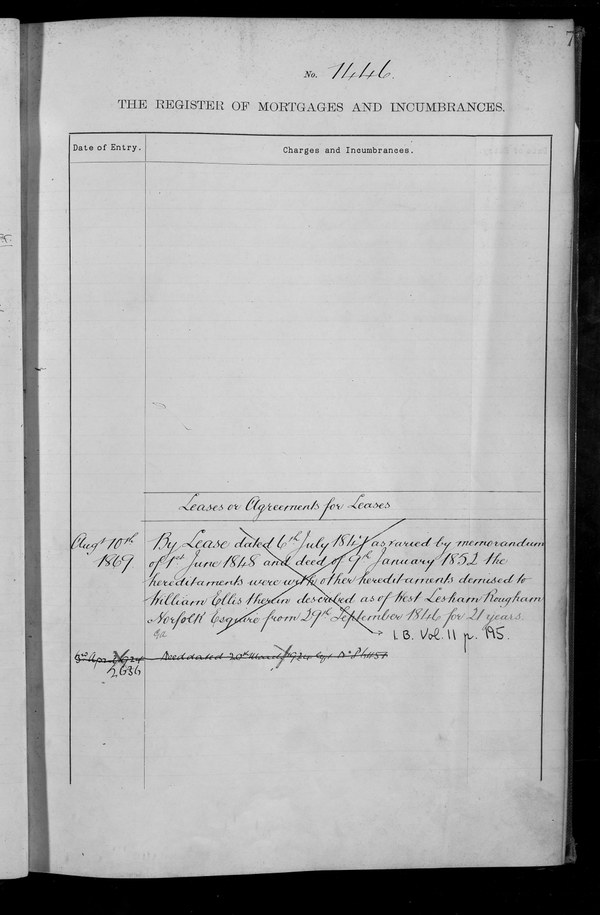 7
No. 1446.
THE REGISTER OF MORTGAGES AND INCUMBRANCES.
Date of Entry.
Charges and Incumbrances.
Leases or Agreements for Leases
Augt 10th 1869
By Lease dated 6th July 1847 as varied by memorandum
of 1st June 1848 and deed of 9th January 1852 the
hereditaments were with other hereditaments demised to
William Ellis therein described as of West Lexham Rougham
Norfolk Esquire from 29th September 1846 for 21 years.
I.B. Vol. 11 p. 195.
3rd Apr 1924 Deed dated 20th March
2636